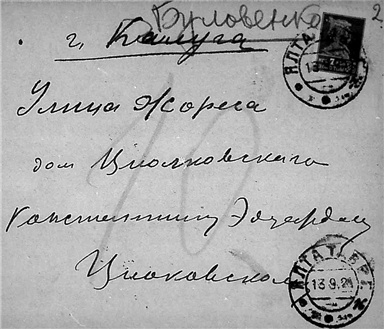 Буловенко
2
г. Калуга
Улица Жореса
дом Циолковского
Константину Эдуардов
Циоковском
ЯЛТА
13
ЯЛТА Т.
13.9.2
10